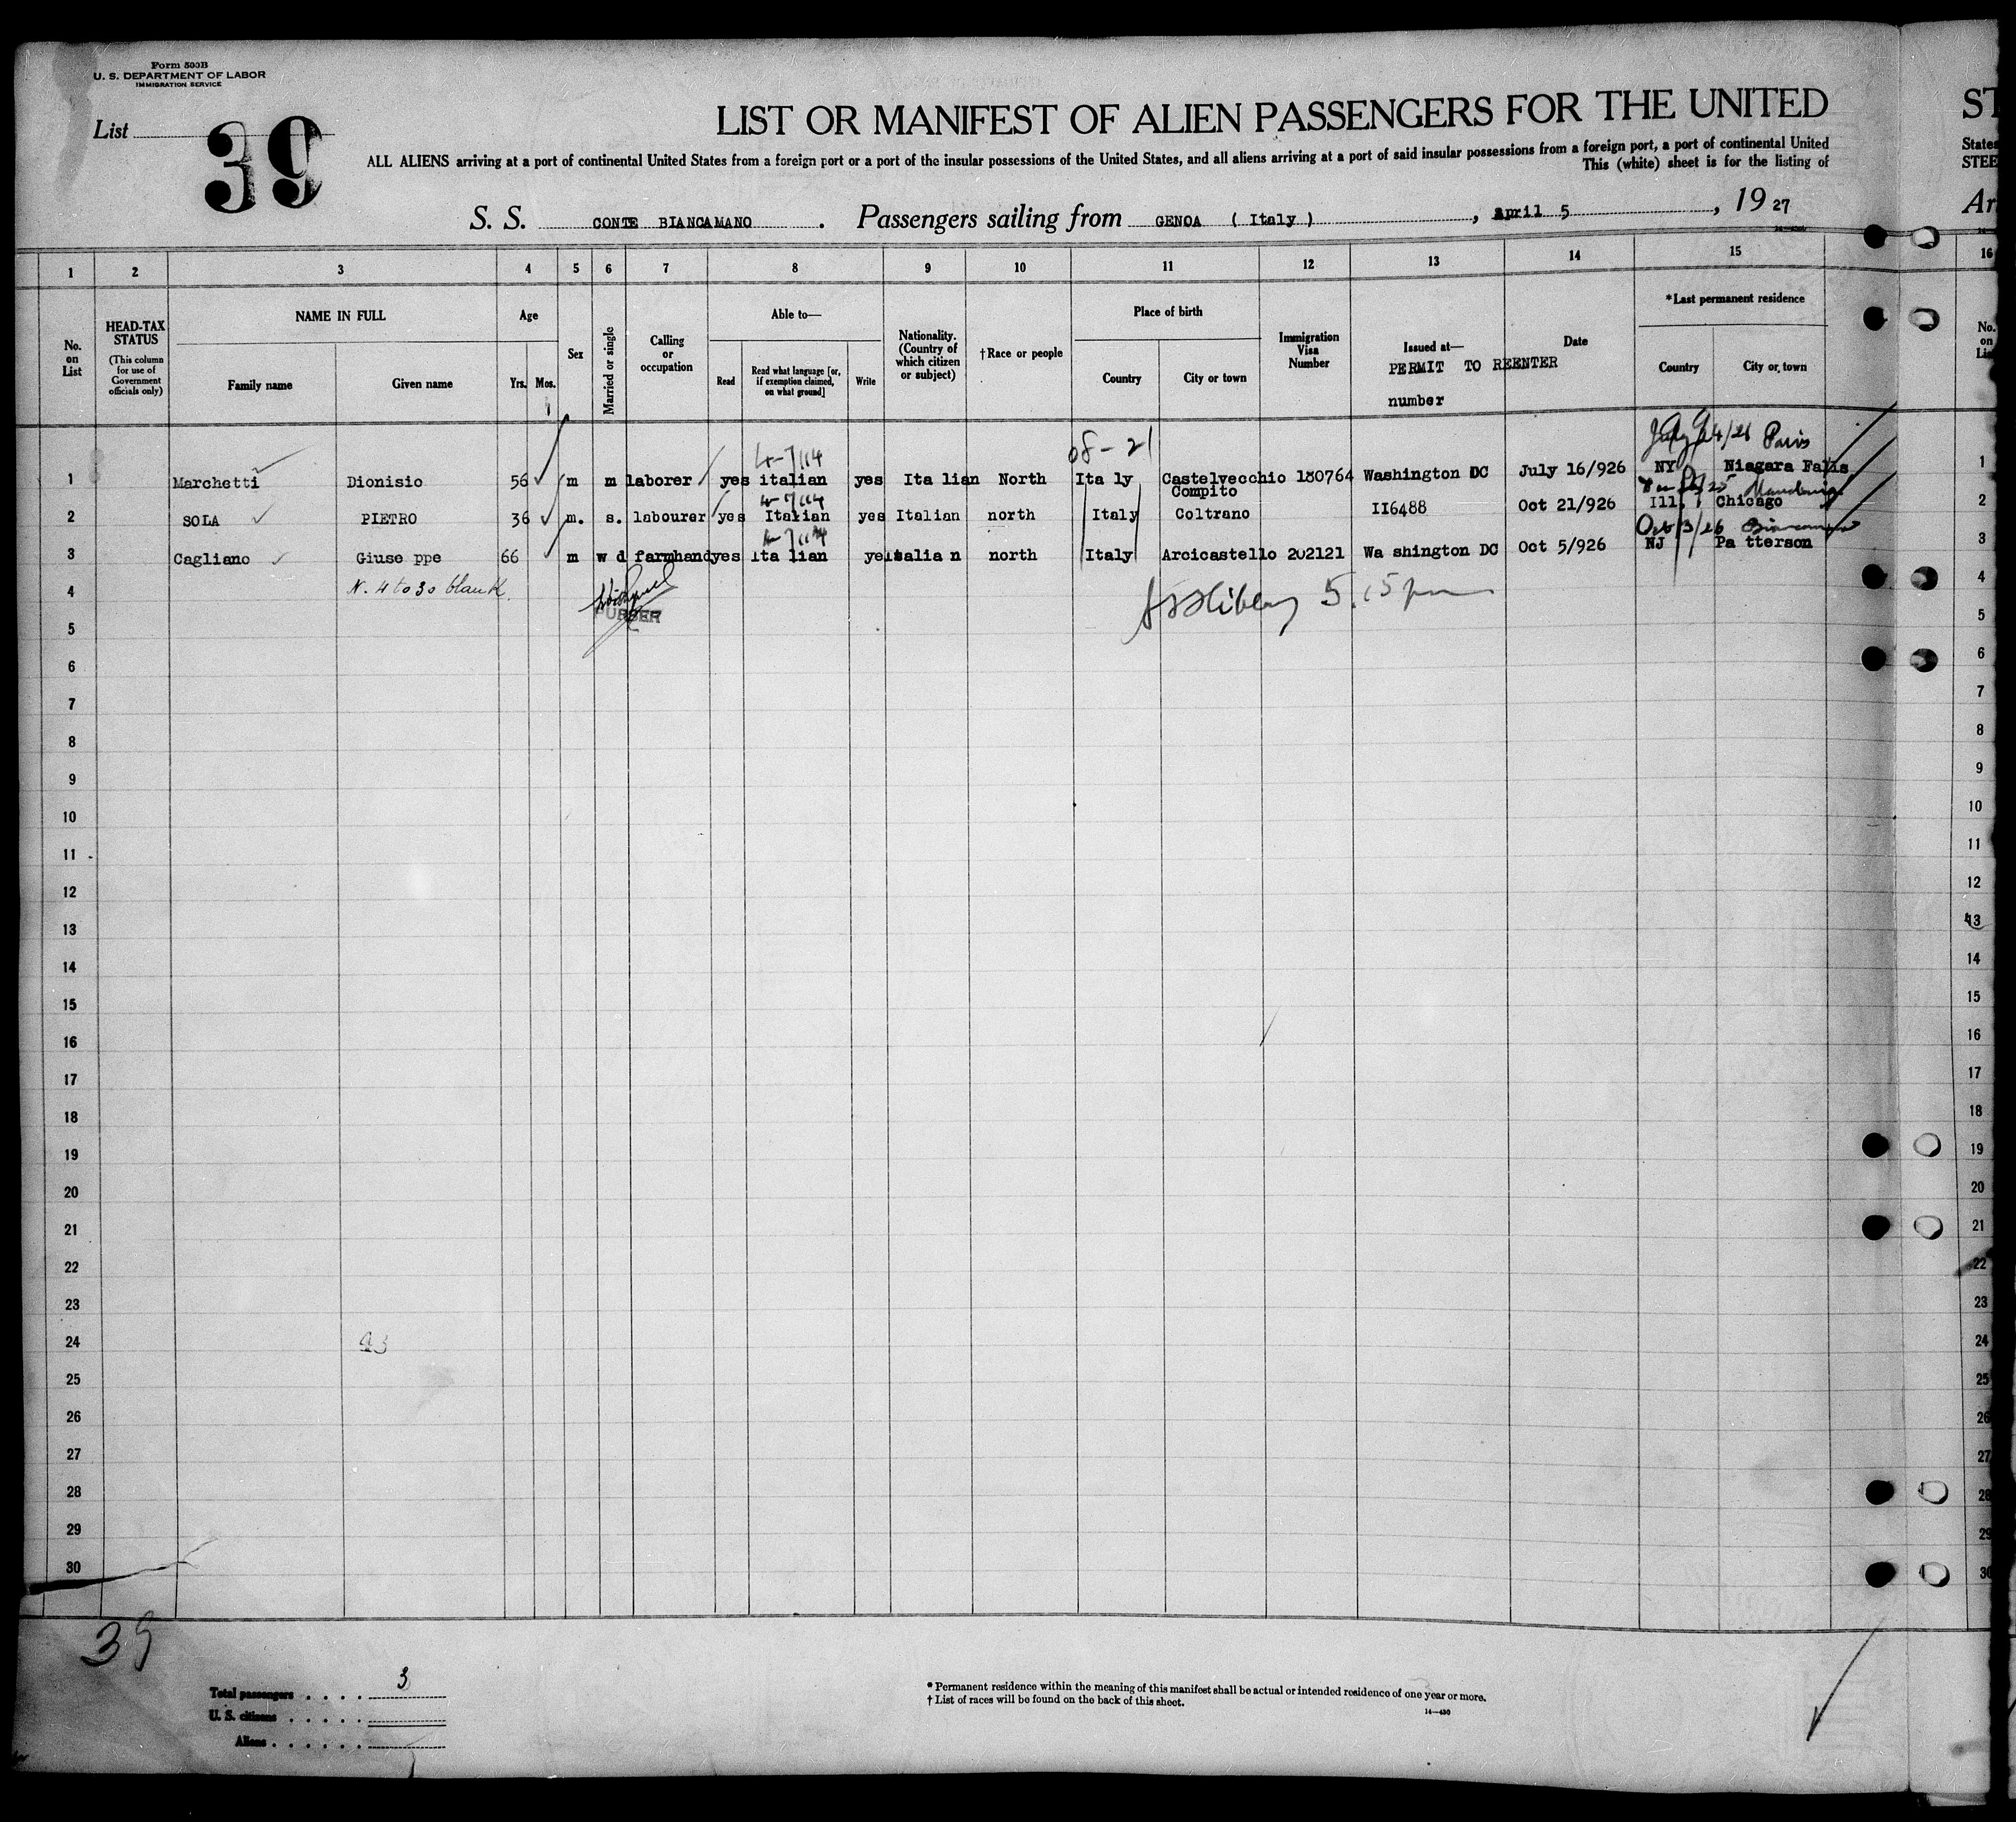 Form 500B
U. S. DEPARTMENT OF LABOR
IMMIGRATION SERVICE
List 39
LIST OR MANIFEST OF ALIEN PASSENGERS FOR THE UNITED
ST
ALL ALIENS arriving at a port of continental United States from a foreign port or a port of the insular possessions of the United States, and all aliens arriving at a port of said insular possessions from a foreign port, a port of continental United
States
This (white) sheet is for the listing of
STEE
S. S. CONTE BIANCAMANO. Passengers sailing from GENOA ( Italy ), april 5, 19 27
Ar
1 2 3 4 5 6 7 8 9 10 11 12 13 14 15 16
No. on List
HEAD-TAX STATUS
(This column for use of Government officials only)
NAME IN FULL
Family name
Given name
Age
Yrs. Mos.
Sex
Married or single
Calling or occupation
Able to—
Read
Read what language [or, if exemption claimed, on what ground]
Write
Nationality. (Country of which citizen or subject)
†Race or people
Place of birth
Country
City or town
Immigration Visa Number
Issued at—
PERMIT TO REENTER
number
Date
*Last permanent residence
Country
City or town
No. on Li
08-21
Paris
1 Marchetti Dionisio 56 m m laborer yes italian yes Ita lian North Ita ly Castelvecchio Compito 180764 Washington DC July 16/926 NY Niagara Falls 1
2 SOLA PIETRO 36 m. s. labourer yes Italian yes Italian north Italy Coltrano II6488 Oct 21/926 Ill, Chicago 2
Oct 3/26
3 Cagliano Giuse ppe 66 m w d farmhand yes Ita lian yes Italia n north Italy Arcicastello 202121 Wa shington DC Oct 5/926 NJ Pa tterson 3
4 N. 4 to 30 blank. 5.15 pm 4
PURSER
5 5
6 6
7 7
8 8
9 9
10 10
11 11
12 12
13 13
14 14
15 15
16 16
17 17
18 18
19 19
20 20
21 21
22 22
23 23
24 24
25 25
26 26
27 27
28 28
29 29
30 30
39
Total passengers . . . . 3
U. S. citizens . . . . .
Aliens . . . . . .
* Permanent residence within the meaning of this manifest shall be actual or intended residence of one year or more.
† List of races will be found on the back of this sheet.
14—430